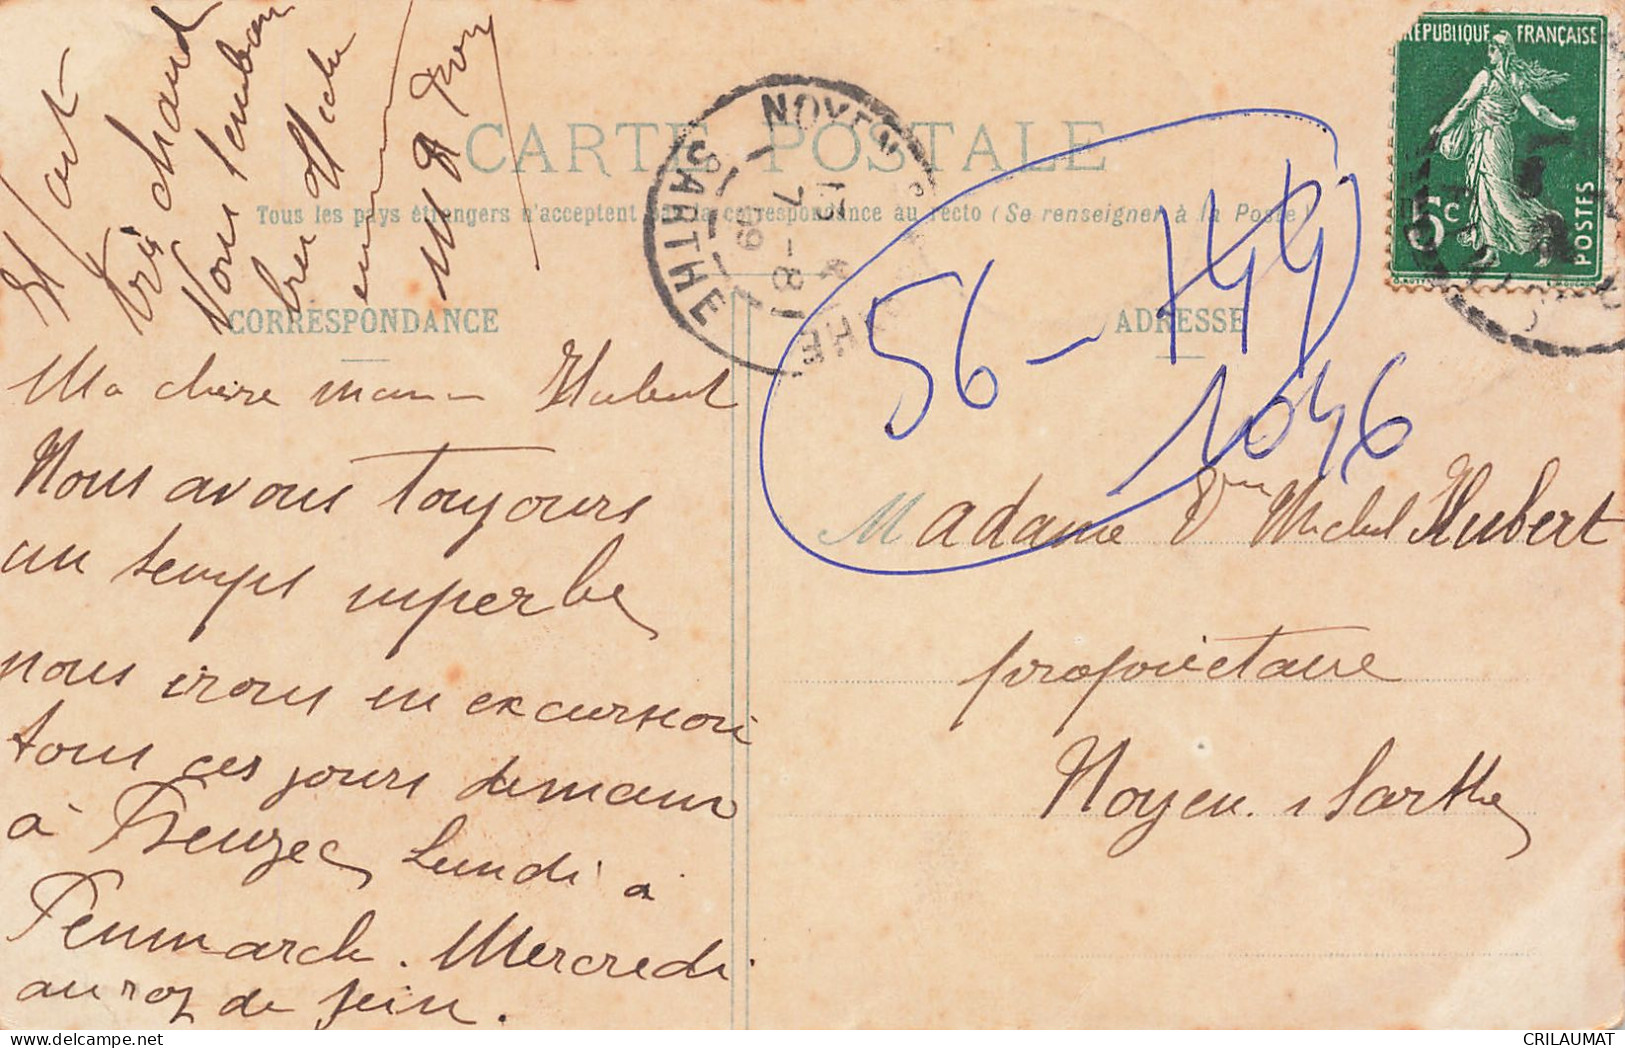 RÉPUBLIQUE FRANÇAISE
5c
POSTES
CARTE POSTALE
Tous les pays étrangers n'acceptent pas la correspondance au recto (Se renseigner à la Poste)
CORRESPONDANCE
ADRESSE
NOYEN
SARTHE
56 -
1046
Il fait
très chaud
Vous
Ma chère maman Hubert
Nous avons toujours
un temps superbe
nous irons en excursion
tous ces jours demain
à Beuzec Lundi à
Penmarch. Mercredi
au raz de sein.
Madame Vve Michel Hubert
propriétaire
Noyen. s Sarthe
CRILAUMAT